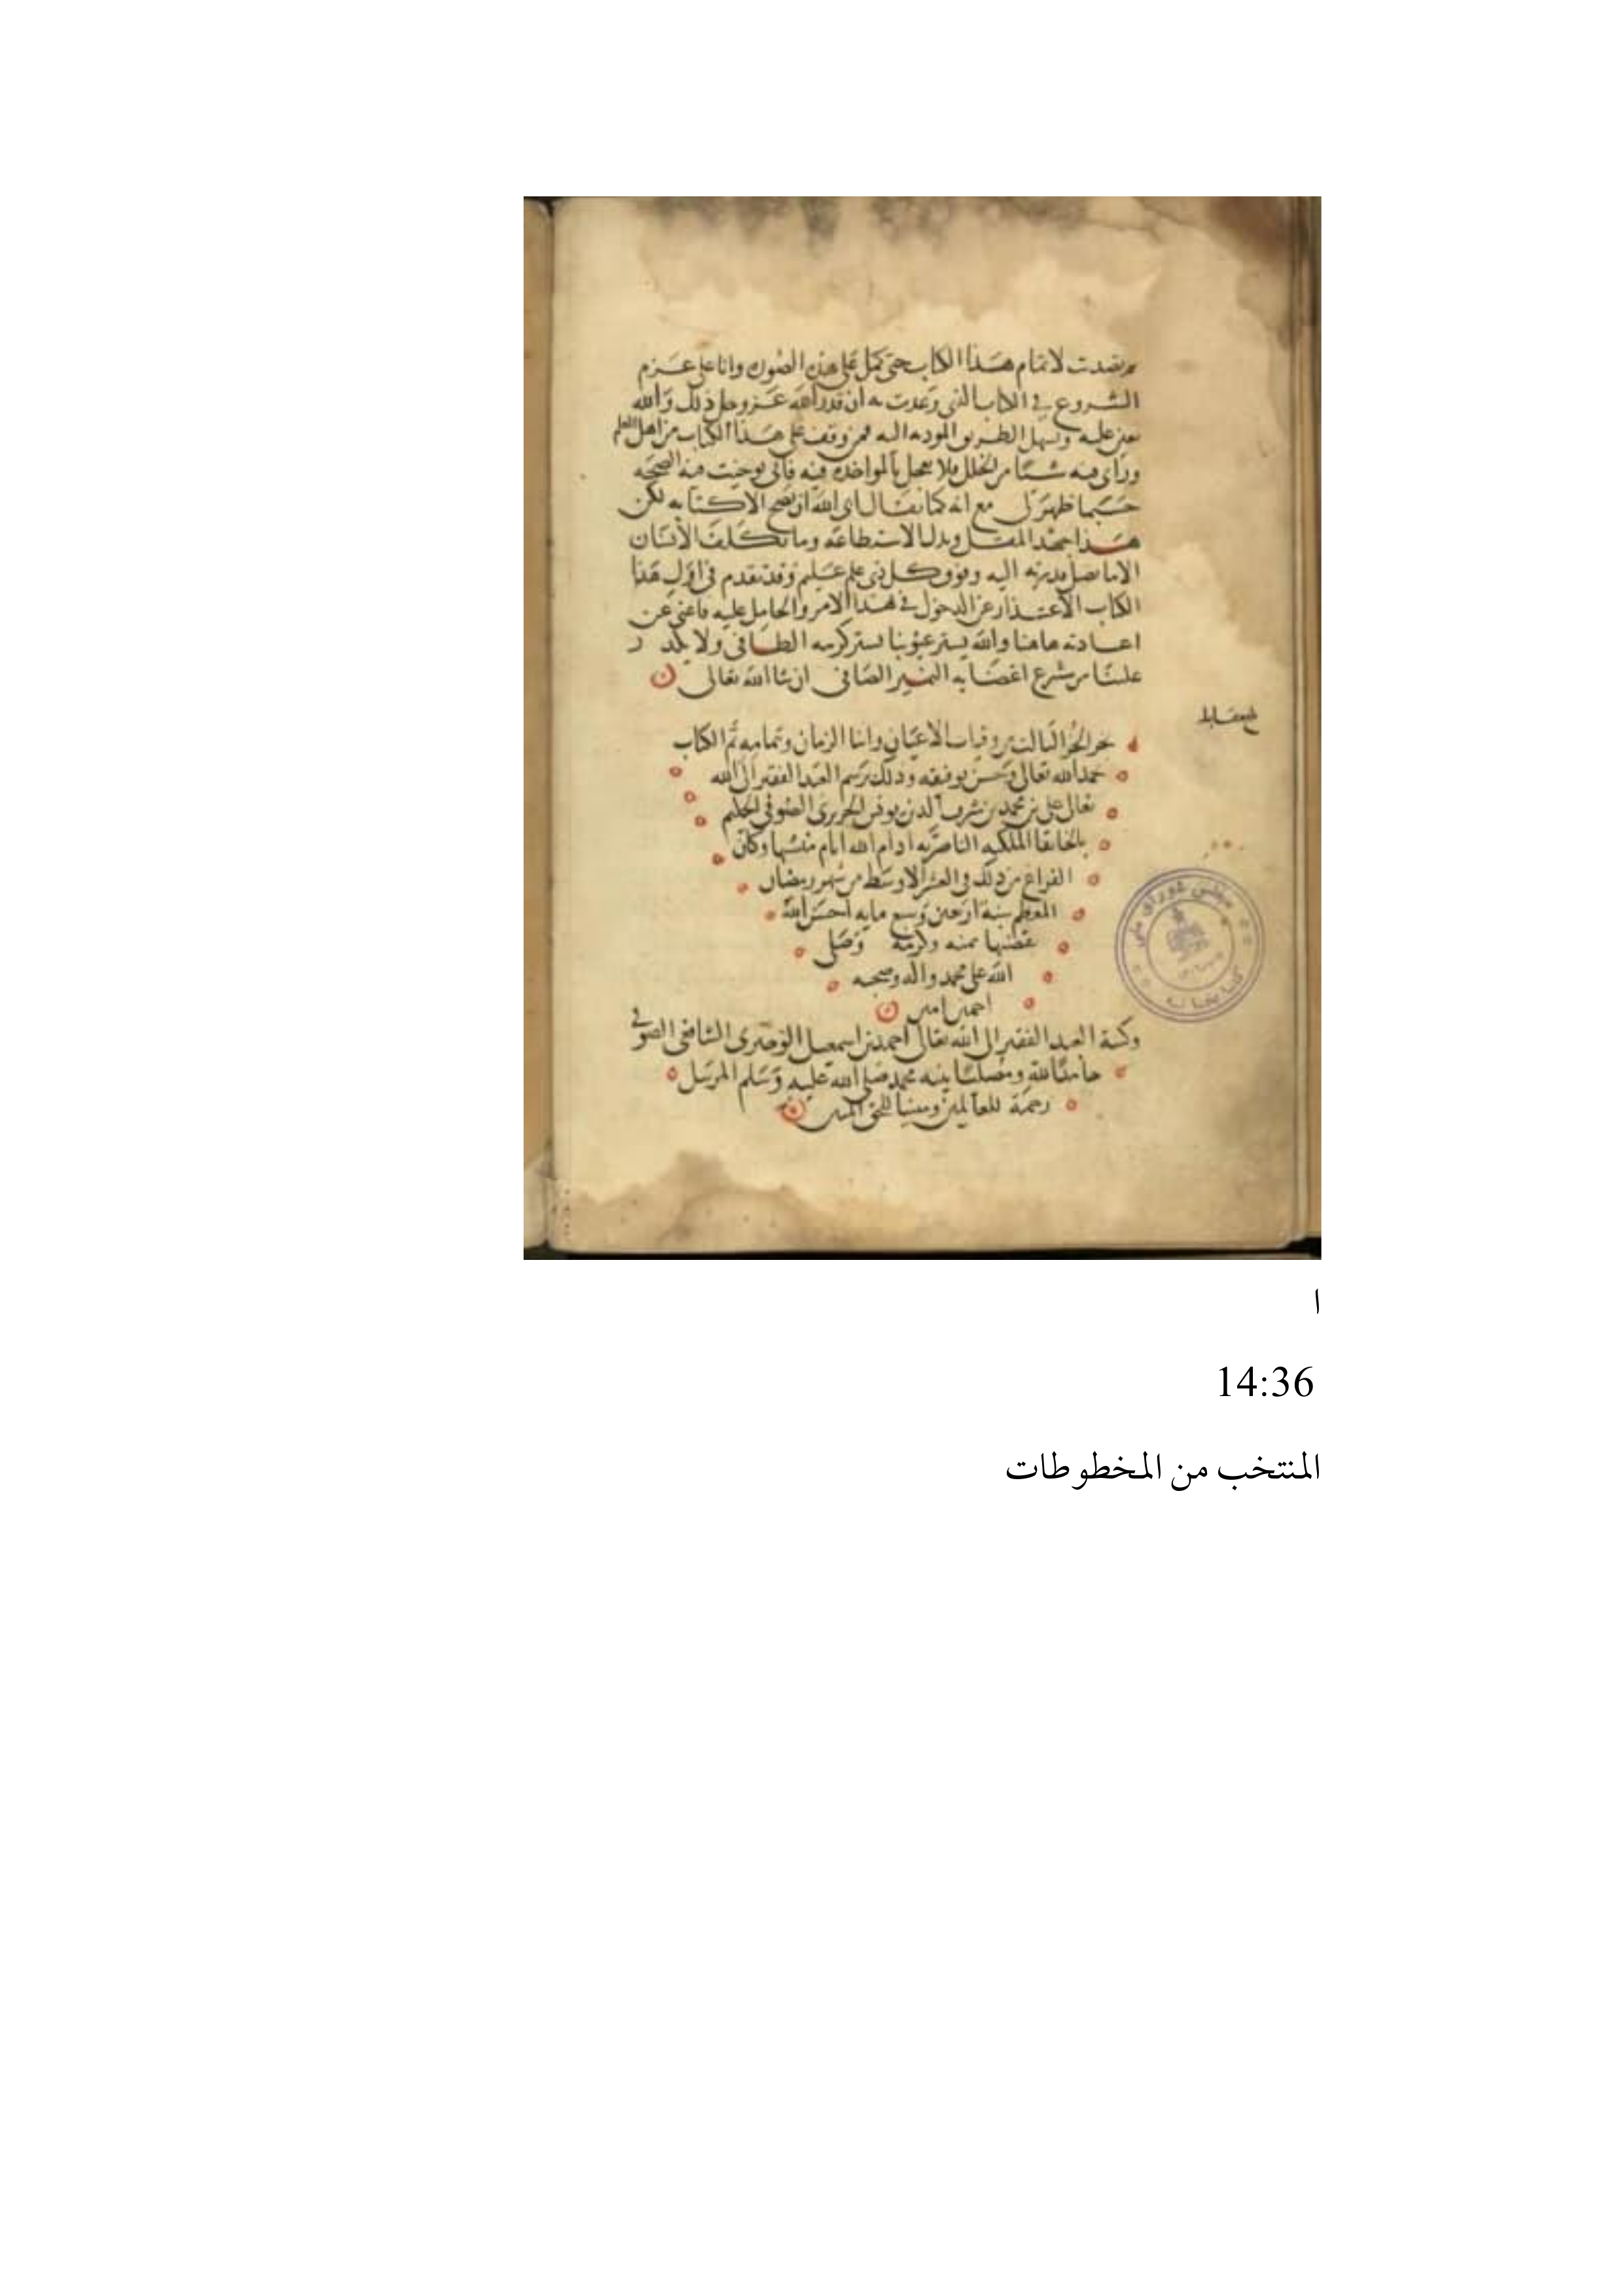 تصديت لاتمام هذا الكتاب حتى كمل على هذه الصورة وانا على عزم
الشروع في الكتاب الذي وعدت به ان قدر الله عز وجل ذلك والله
يعين عليه ويسهل الطريق المودية اليه فمن وقف على هذا الكتاب من اهل العلم
وراى فيه شيئا من الخلل فلا يعجل بالمواخذة فيه فاني توخيت فيه الصحة
حسبما ظهر لي مع انه كما يقال ابى الله ان يصح الا كتابه لكن
هذا جهد المقل وبذل الاستطاعة وما يكلف الانسان
الا ما تصل قدرته اليه وفوق كل ذي علم عليم وقد تقدم في اول هذا
الكتاب الاعتذار عن الدخول في هذا الامر والحامل عليه فاغنى عن
اعادته هاهنا والله يستر عيوبنا بستر كرمه الضافي ولا يكدر
علينا من مشرع اغضايه النمير الصافي ان شا الله تعالى
بلغ مقابلة
الجز الثالث من وفيات الاعيان وانبا ابنا الزمان وبتمامه تم الكتاب
بحمد الله تعالى وحسن توفيقه وذلك برسم العبد الفقير الى الله
تعالى علي بن محمد بن شرف الدين يونس الحريري الصوفي
بالخانقا الملكية الناصرية ادام الله ايام منشيها وكان
الفراغ من ذلك في العشر الاوسط من شهر رمضان
المعظم سنة اربعين وسبع ماية احسن الله
بمنه وكرمه وصلى
الله على محمد واله وصحبه
اجمعين امين
وكتبه العبد الفقير الى الله تعالى احمد بن اسمعيل الشافعي الصوفي
حامدا لله ومصليا نبيه محمد صلى الله عليه وسلم المرسل
رحمة للعالمين
مجلس شورای ملی
کتابخانه
ا
14:36
المنتخب من المخطوطات